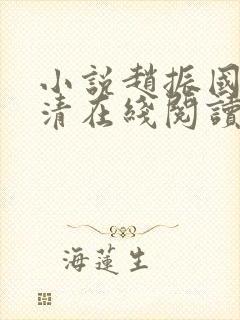 小説趙振國
清在綫閱讀
海蓮生